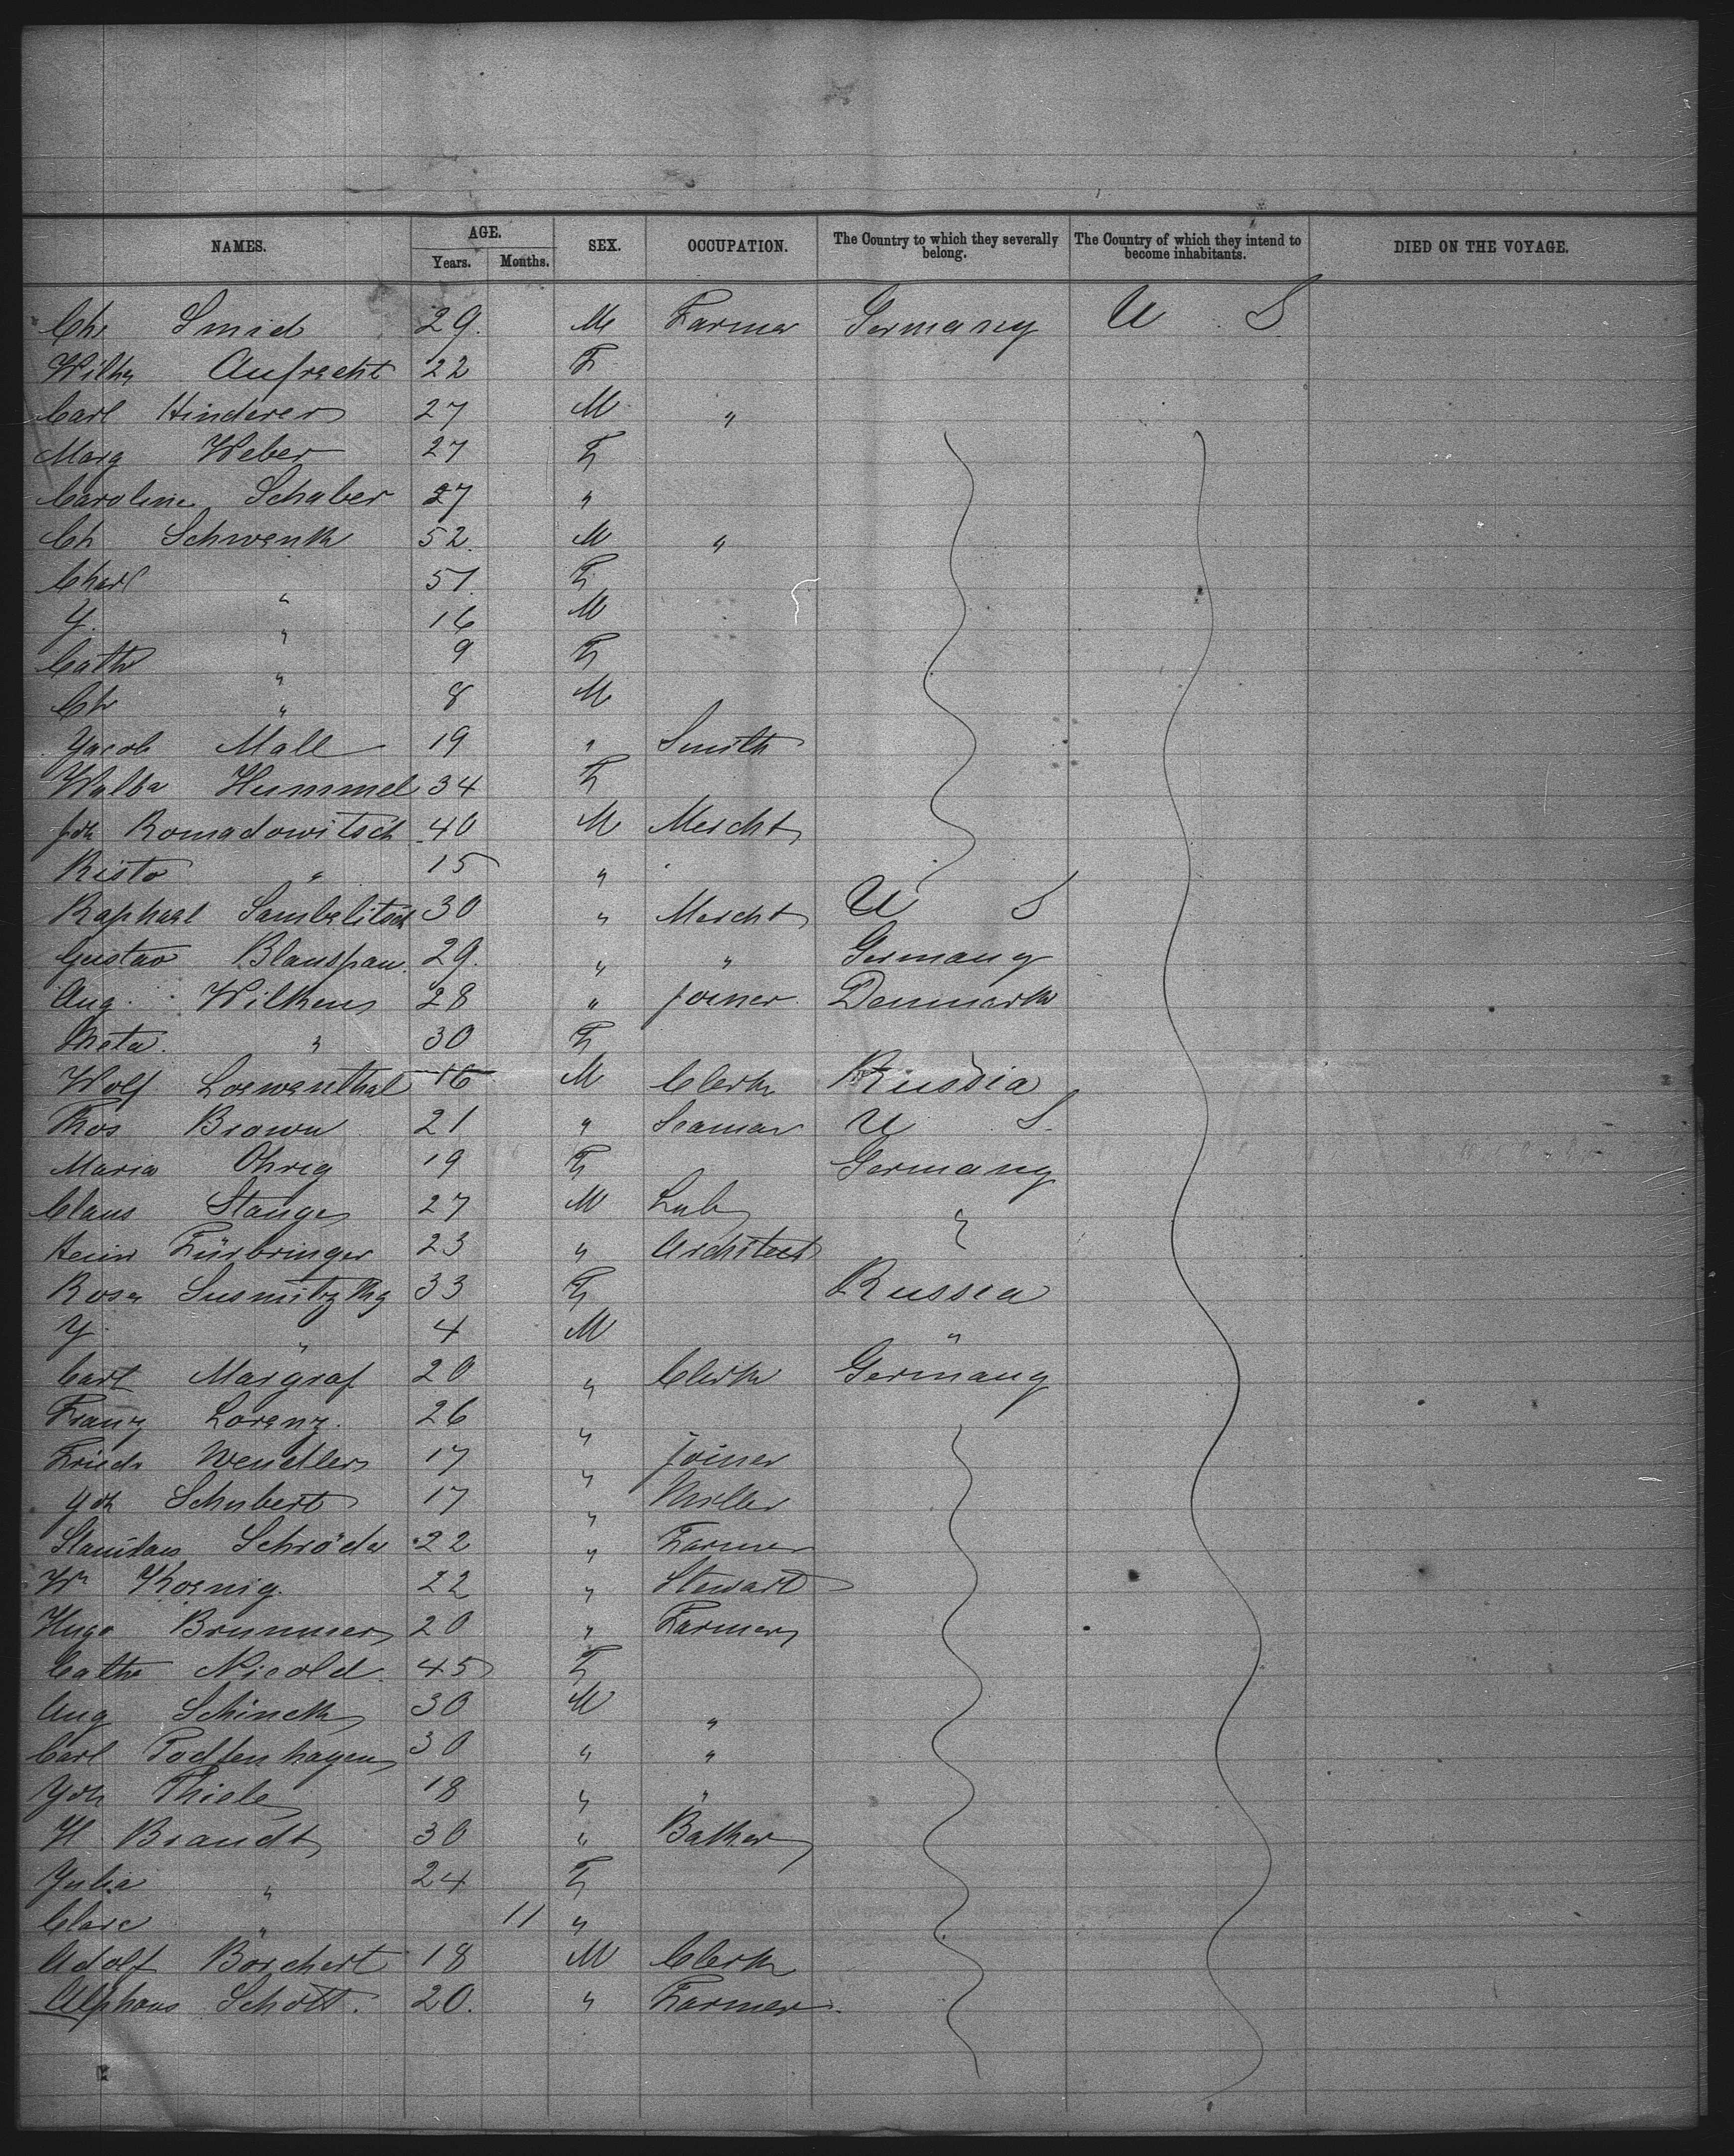 NAMES. AGE. Years. Months. SEX. OCCUPATION. The Country to which they severally belong. The Country of which they intend to become inhabitants. DIED ON THE VOYAGE.
Chr Smid 29. M Farmer Germany U. S
Wilhe Aufrecht 22 F
Carl Hinderer 27 M "
Marg Weber 27 F
Caroline Schaber 27 "
Ch Schwenk 52. M "
Charl " 51. F
J. " 16 M
Cath " 9 F
Chr " 8 M
Jacob Mall 19 " Smith
Walba Hummel 34 F
Joh Romadowitsch 40 M Mercht
Risto " 15 "
Raphael Sambelitsch 30 " Mercht U S
Gustav Blauspan. 29. " " Germany
Aug. Wilkens 28 " Joiner Denmark
Meta. " 30 F
Wolf Loewenthal 16 M Clerk Russia
Thos Brown 21 " Seaman U S.
Maria Ohrig 19 F Germany
Claus Stange 27 M Lab "
Heinr Fürbringer 23 " Architect
Rosa Susmitzky 33 F Russia
J. " 4 M "
Carl Margraf 20 " Clerk Germany
Franz Lorenz. 26 "
Friedr Wendler 17 " Joiner
Joh Schubert 17 " Miller
Stanislaus Schröder 22 " Farmer
Wm Koenig. 22 " Stewart
Hugo Brunner 20 " Farmer
Cathe Nicold. 45 F
Aug Schinck 30 M "
Carl Todtenhagen 30 " "
Joh Thiele 18 " "
H. Brandt 30 " Baker
Julia " 24 F
Clare " 11 "
Adolf Borchert 18 M Clerk
Alphons Schott. 20. " Farmer.